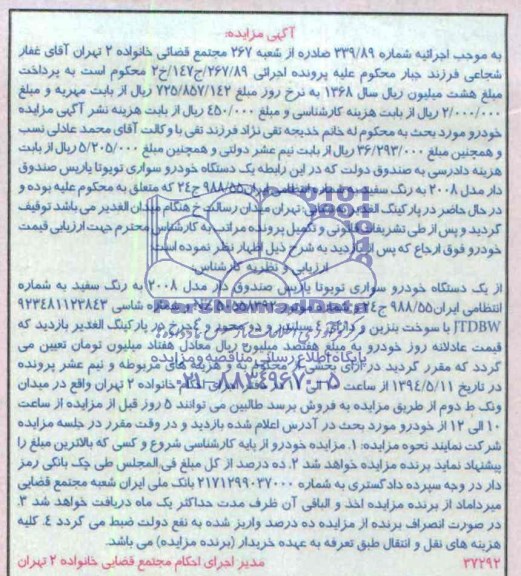 آگهی مزایده:
به موجب اجرائیه شماره ۳۳۹/۸۹ صادره از شعبه ۲۶۷ مجتمع قضائی خانواده ۲ تهران آقای غفار
شجاعی فرزند جبار محکوم علیه پرونده اجرائی ۲۶۷/۸۹/ج۱۴۷/خ۲ محکوم است به پرداخت
مبلغ هشت میلیون ریال سال ۱۳۶۸ به نرخ روز مبلغ ۷۲۵/۸۵۷/۱۴۲ ریال از بابت مهریه و مبلغ
۲/۰۰۰/۰۰۰ ریال از بابت هزینه کارشناسی و مبلغ ۴۵۰/۰۰۰ ریال از بابت هزینه نشر آگهی مزایده
خودرو مورد بحث به محکوم له خانم خدیجه تقی نژاد فرزند تقی با وکالت آقای محمد عادلی نسب
و همچنین مبلغ ۳۶/۲۹۳/۰۰۰ ریال از بابت نیم عشر دولتی و همچنین مبلغ ۵/۲۰۵/۰۰۰ ریال از بابت
هزینه دادرسی به صندوق دولت که در این رابطه یک دستگاه خودرو سواری تویوتا یاریس صندوق
دار مدل ۲۰۰۸ به رنگ سفید به شماره انتظامی ایران ۹۸۸/۵۵ ج۲۴ که متعلق به محکوم علیه بوده و
در حال حاضر در پارکینگ الغدیر به نشانی: تهران میدان رسالت خ هنگام میدان الغدیر می باشد توقیف
گردید و پس از طی تشریفات قانونی و تکمیل پرونده مراتب به کارشناس محترم جهت ارزیابی قیمت
خودرو فوق ارجاع که پس از بازدید به شرح ذیل اظهار نظر نموده است:
ارزیابی و نظریه کارشناس:
از یک دستگاه خودرو سواری تویوتا یاریس صندوق دار مدل ۲۰۰۸ به رنگ سفید به شماره
انتظامی ایران ۹۸۸/۵۵ ج۲۴ و شماره موتور شماره شاسی ۹۲۳۴۸۱۱۲۲۸۴۳
JTDBW با سوخت بنزین و دارای ۴ سیلندر و دو محور و ۴ چرخ در پارکینگ الغدیر بازدید که
قیمت عادلانه روز خودرو به مبلغ هفتصد میلیون ریال معادل هفتاد میلیون تومان تعیین می
گردد که مقرر گردید در ازای بخشی از محکوم به و هزینه های مربوطه و نیم عشر پرونده
در تاریخ ۱۳۹۴/۵/۱۱ از ساعت احکام خانواده ۲ تهران واقع در میدان
ونک ط دوم از طریق مزایده به فروش برسد طالبین می توانند ۵ روز قبل از مزایده از ساعت
۱۰ الی ۱۲ از خودرو مورد بحث در آدرس اعلام شده بازدید و در وقت مقرر در جلسه مزایده
شرکت نمایند نحوه مزایده: ۱. مزایده خودرو از پایه کارشناسی شروع و کسی که بالاترین مبلغ را
پیشنهاد نماید برنده مزایده خواهد شد ۲. ده درصد از کل مبلغ فی المجلس طی چک بانکی رمز
دار در وجه سپرده دادگستری به شماره ۲۱۷۱۲۹۹۰۳۷۰۰۰ بانک ملی ایران شعبه مجتمع قضایی
میرداماد از برنده مزایده اخذ و الباقی آن ظرف مدت حداکثر یک ماه دریافت خواهد شد ۳.
در صورت انصراف برنده از مزایده ده درصد واریز شده به نفع دولت ضبط می گردد ۴. کلیه
هزینه های نقل و انتقال طبق تعرفه به عهده خریدار (برنده مزایده) می باشد.
مدیر اجرای احکام مجتمع قضایی خانواده ۲ تهران
۳۷۲۹۲
پایگاه اطلاع رسانی مناقصه و مزایده
۰۲۱-۸۸۳۴۹۶۷۰-۵